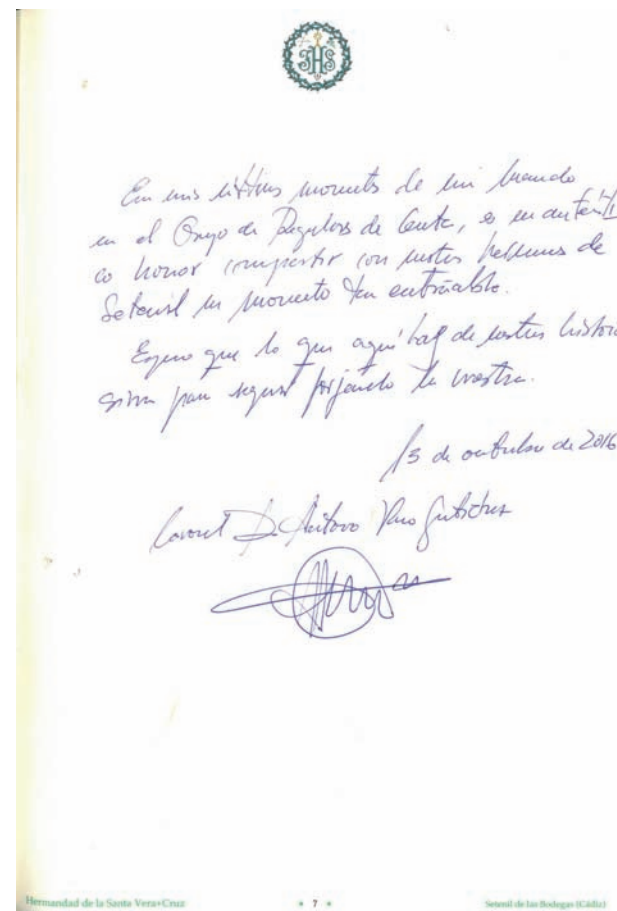 JHS
En mis últimos momentos de mi mando
en el Grupo de Regulares de Ceuta, es un auténti
co honor compartir con nuestros hermanos de
Setenil un momento tan entrañable.
Espero que lo que aquí hay de nuestra historia
sirva para seguir forjando la vuestra.
13 de octubre de 2016
Coronel D. Antonio Gutiérrez
Hermandad de la Santa Vera+Cruz
7
Setenil de las Bodegas (Cádiz)